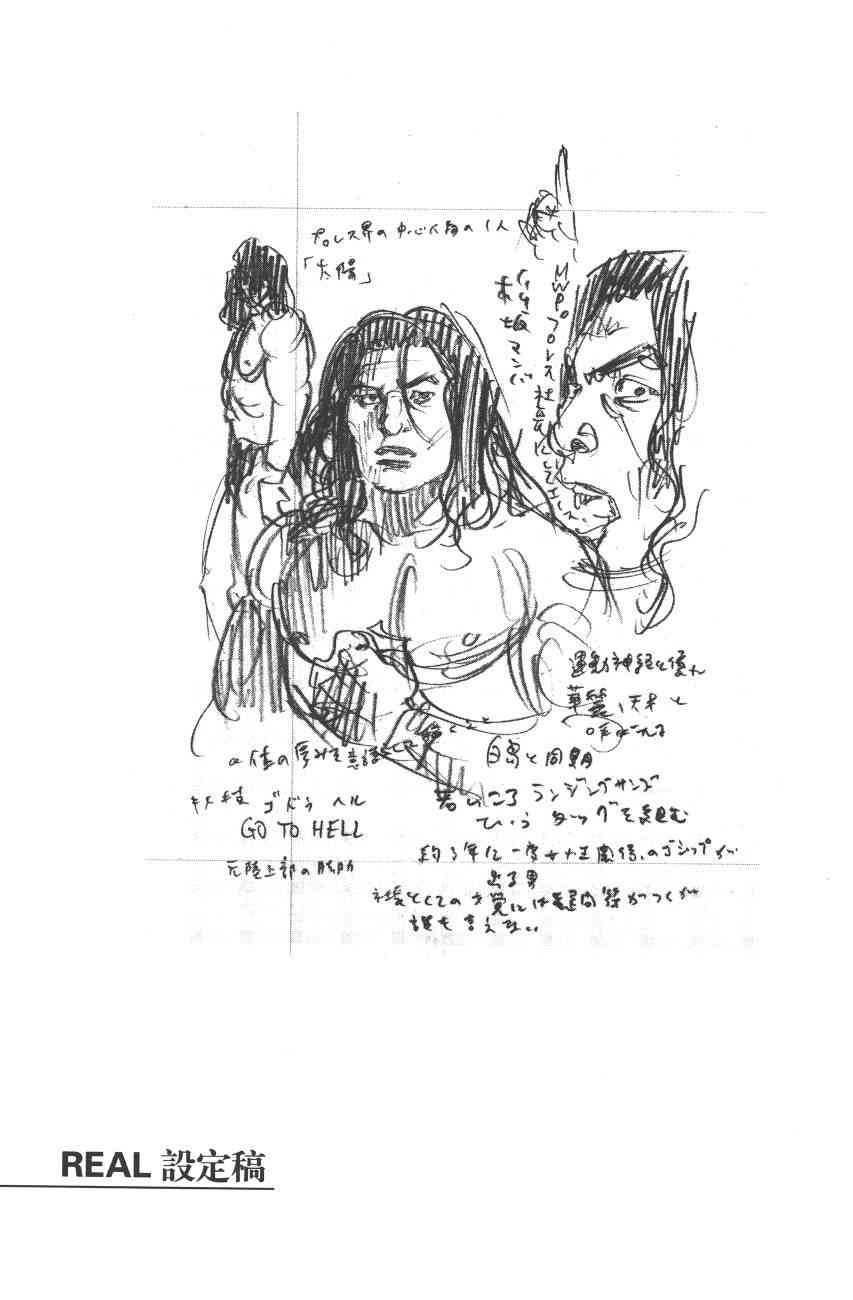 プロレス界の中心人物の1人
「太陽」
MWPプロレス社長にして
マンバ
運動神経に優れ
華麗、天才と
呼ばれる
体の厚みを意識
白鳥と同期
ゴートゥ ヘル
GO TO HELL
若いころ
いう タッグを組む
元陸上部の
約3年に一度女性関係のゴシップが
出る男
社長としての才覚には疑問符がつくが
誰も言えない
REAL 設定稿